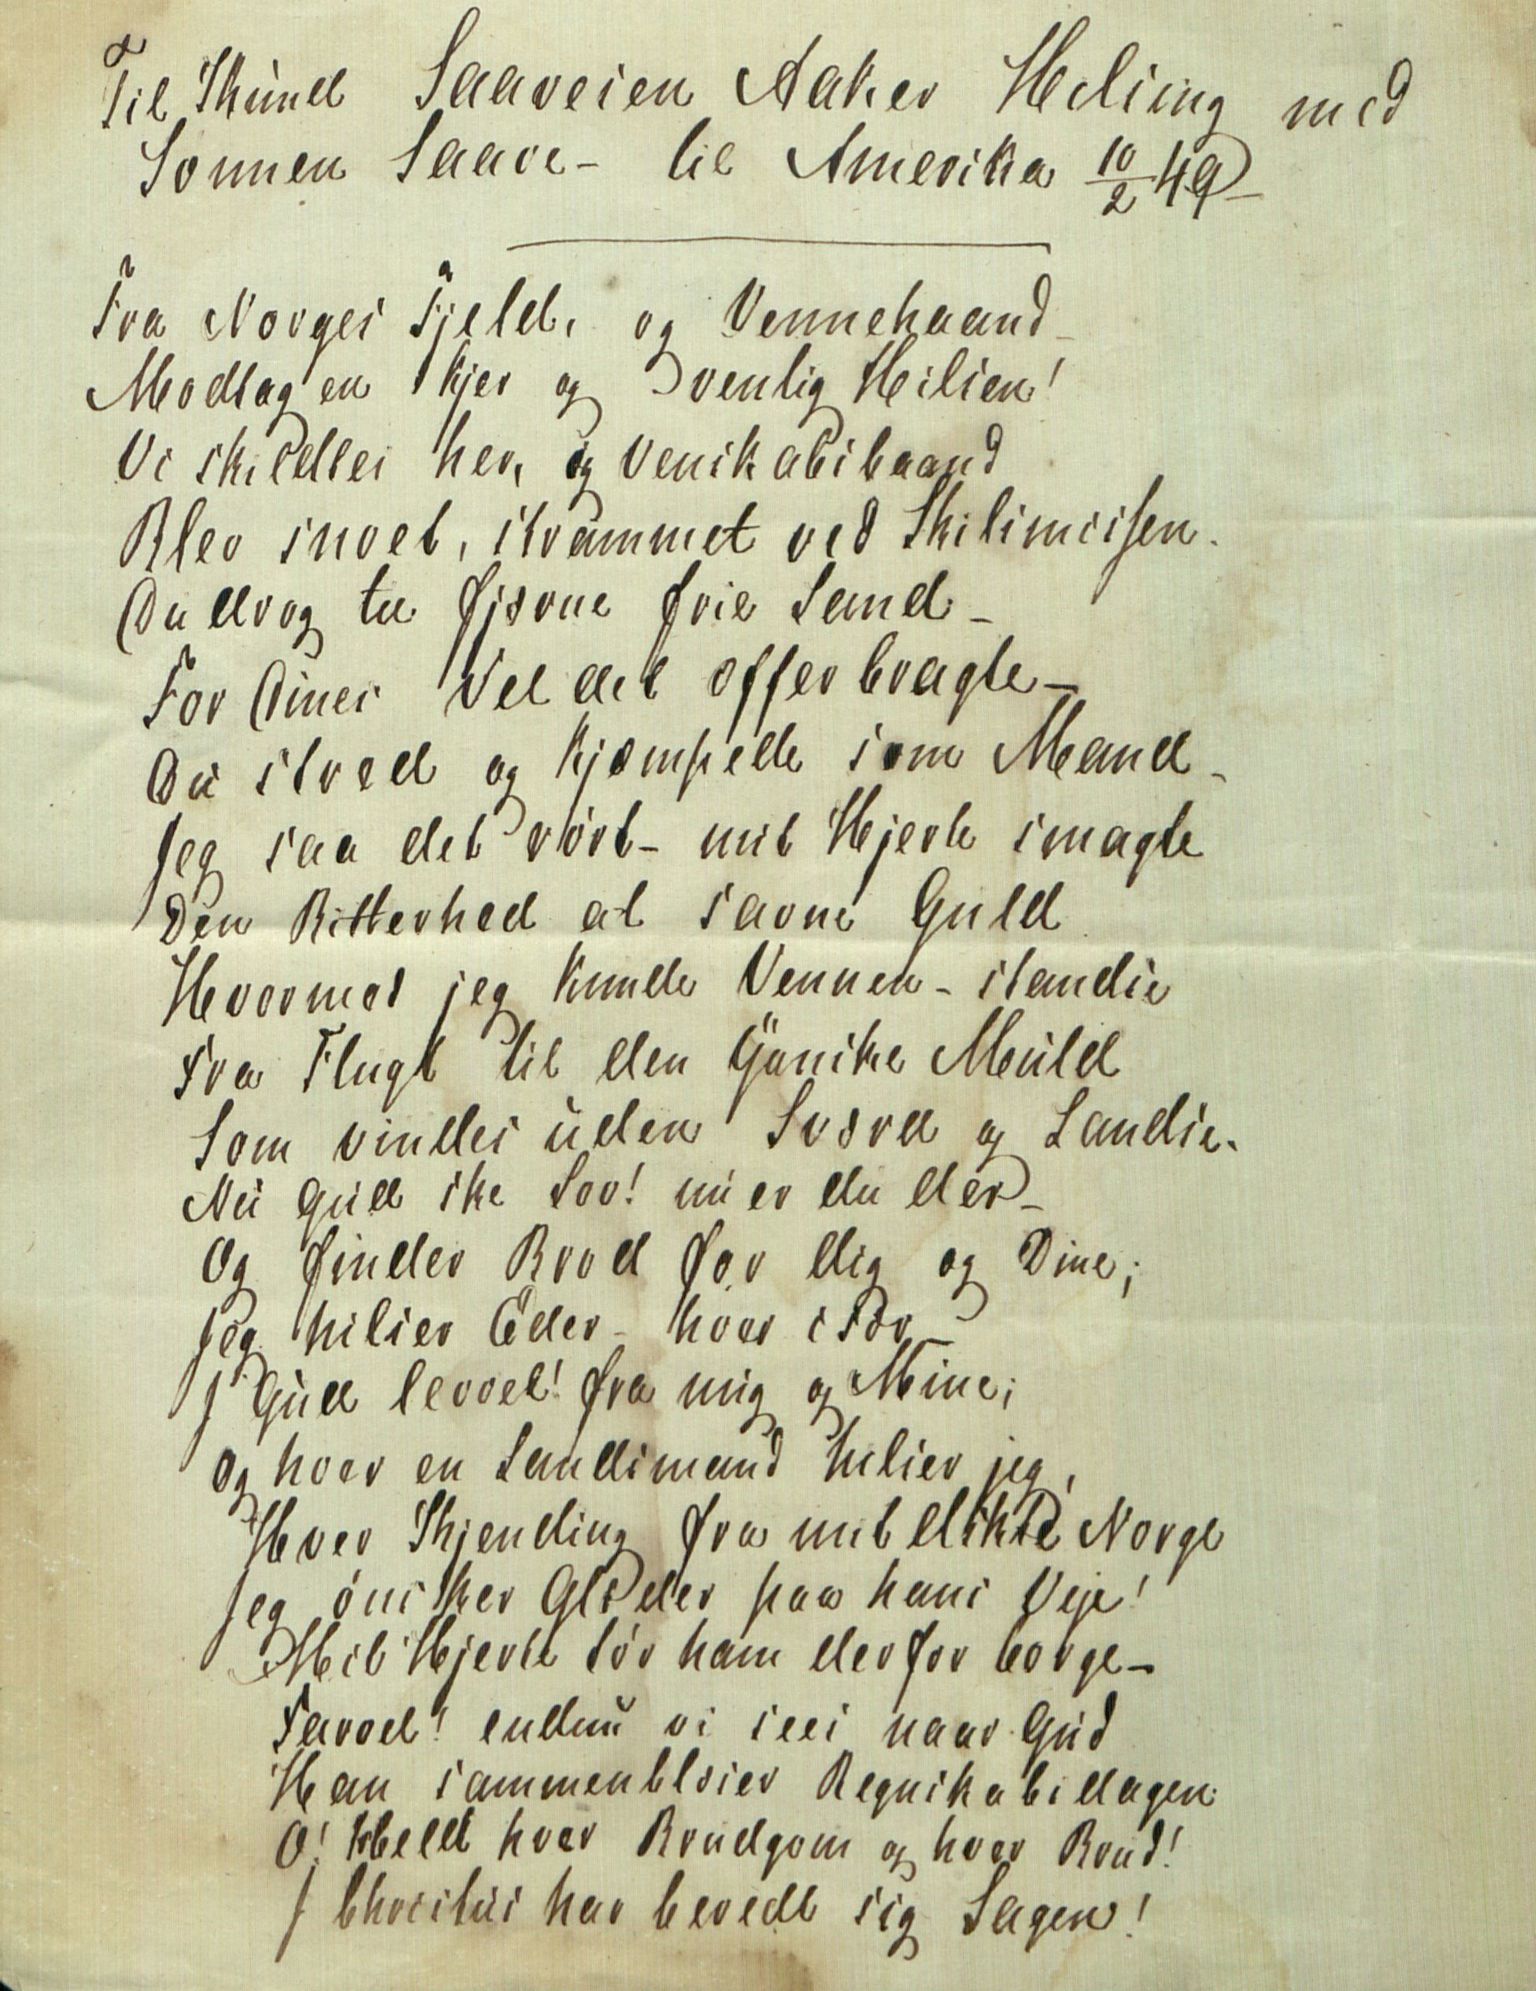 Til Thund Saaveien Aaker Helsing med
Sonnen Saave - til Amerika 10/2 49 -
Fra Norges Fjeld, og Vennehaand -
Modtag en kjer og venlig Hilsen!
Vi skildtes her, og Venskabsbaand
Blev snoet, strammet ved Skilsmissen.
Du drog til fjærne frie Land -
For Dines Vel det offer bragte -
Du stred og kjæmpede som Mand -
Jeg saa det rört - mit Hjerte smagte
Den Bitterhed at savne Guld
Hvormed jeg kunde Vennen - standse
Fra Flugt til den Yanske Muld
Som vindes uden Sværd og Landse.
Nu Gud ske Lov! nu er du der -
Og finder Brod for dig og Dine;
Jeg hilser Eder - hver især -
I Gud levvel! fra mig og Mine;
Og hver en Landsmand hilser jeg,
Hver Kjending fra mit elskte Norge
Jeg önsker Glæder paa hans Veje!
Mit Hjerte tör ham derfor borge -
Farvel! endnu vi sees naar Gud
Han sammenblæser Regnskabsdagen
O! Held hver Brudgom og hver Brud!
I Christus har beredt sig Sagen!